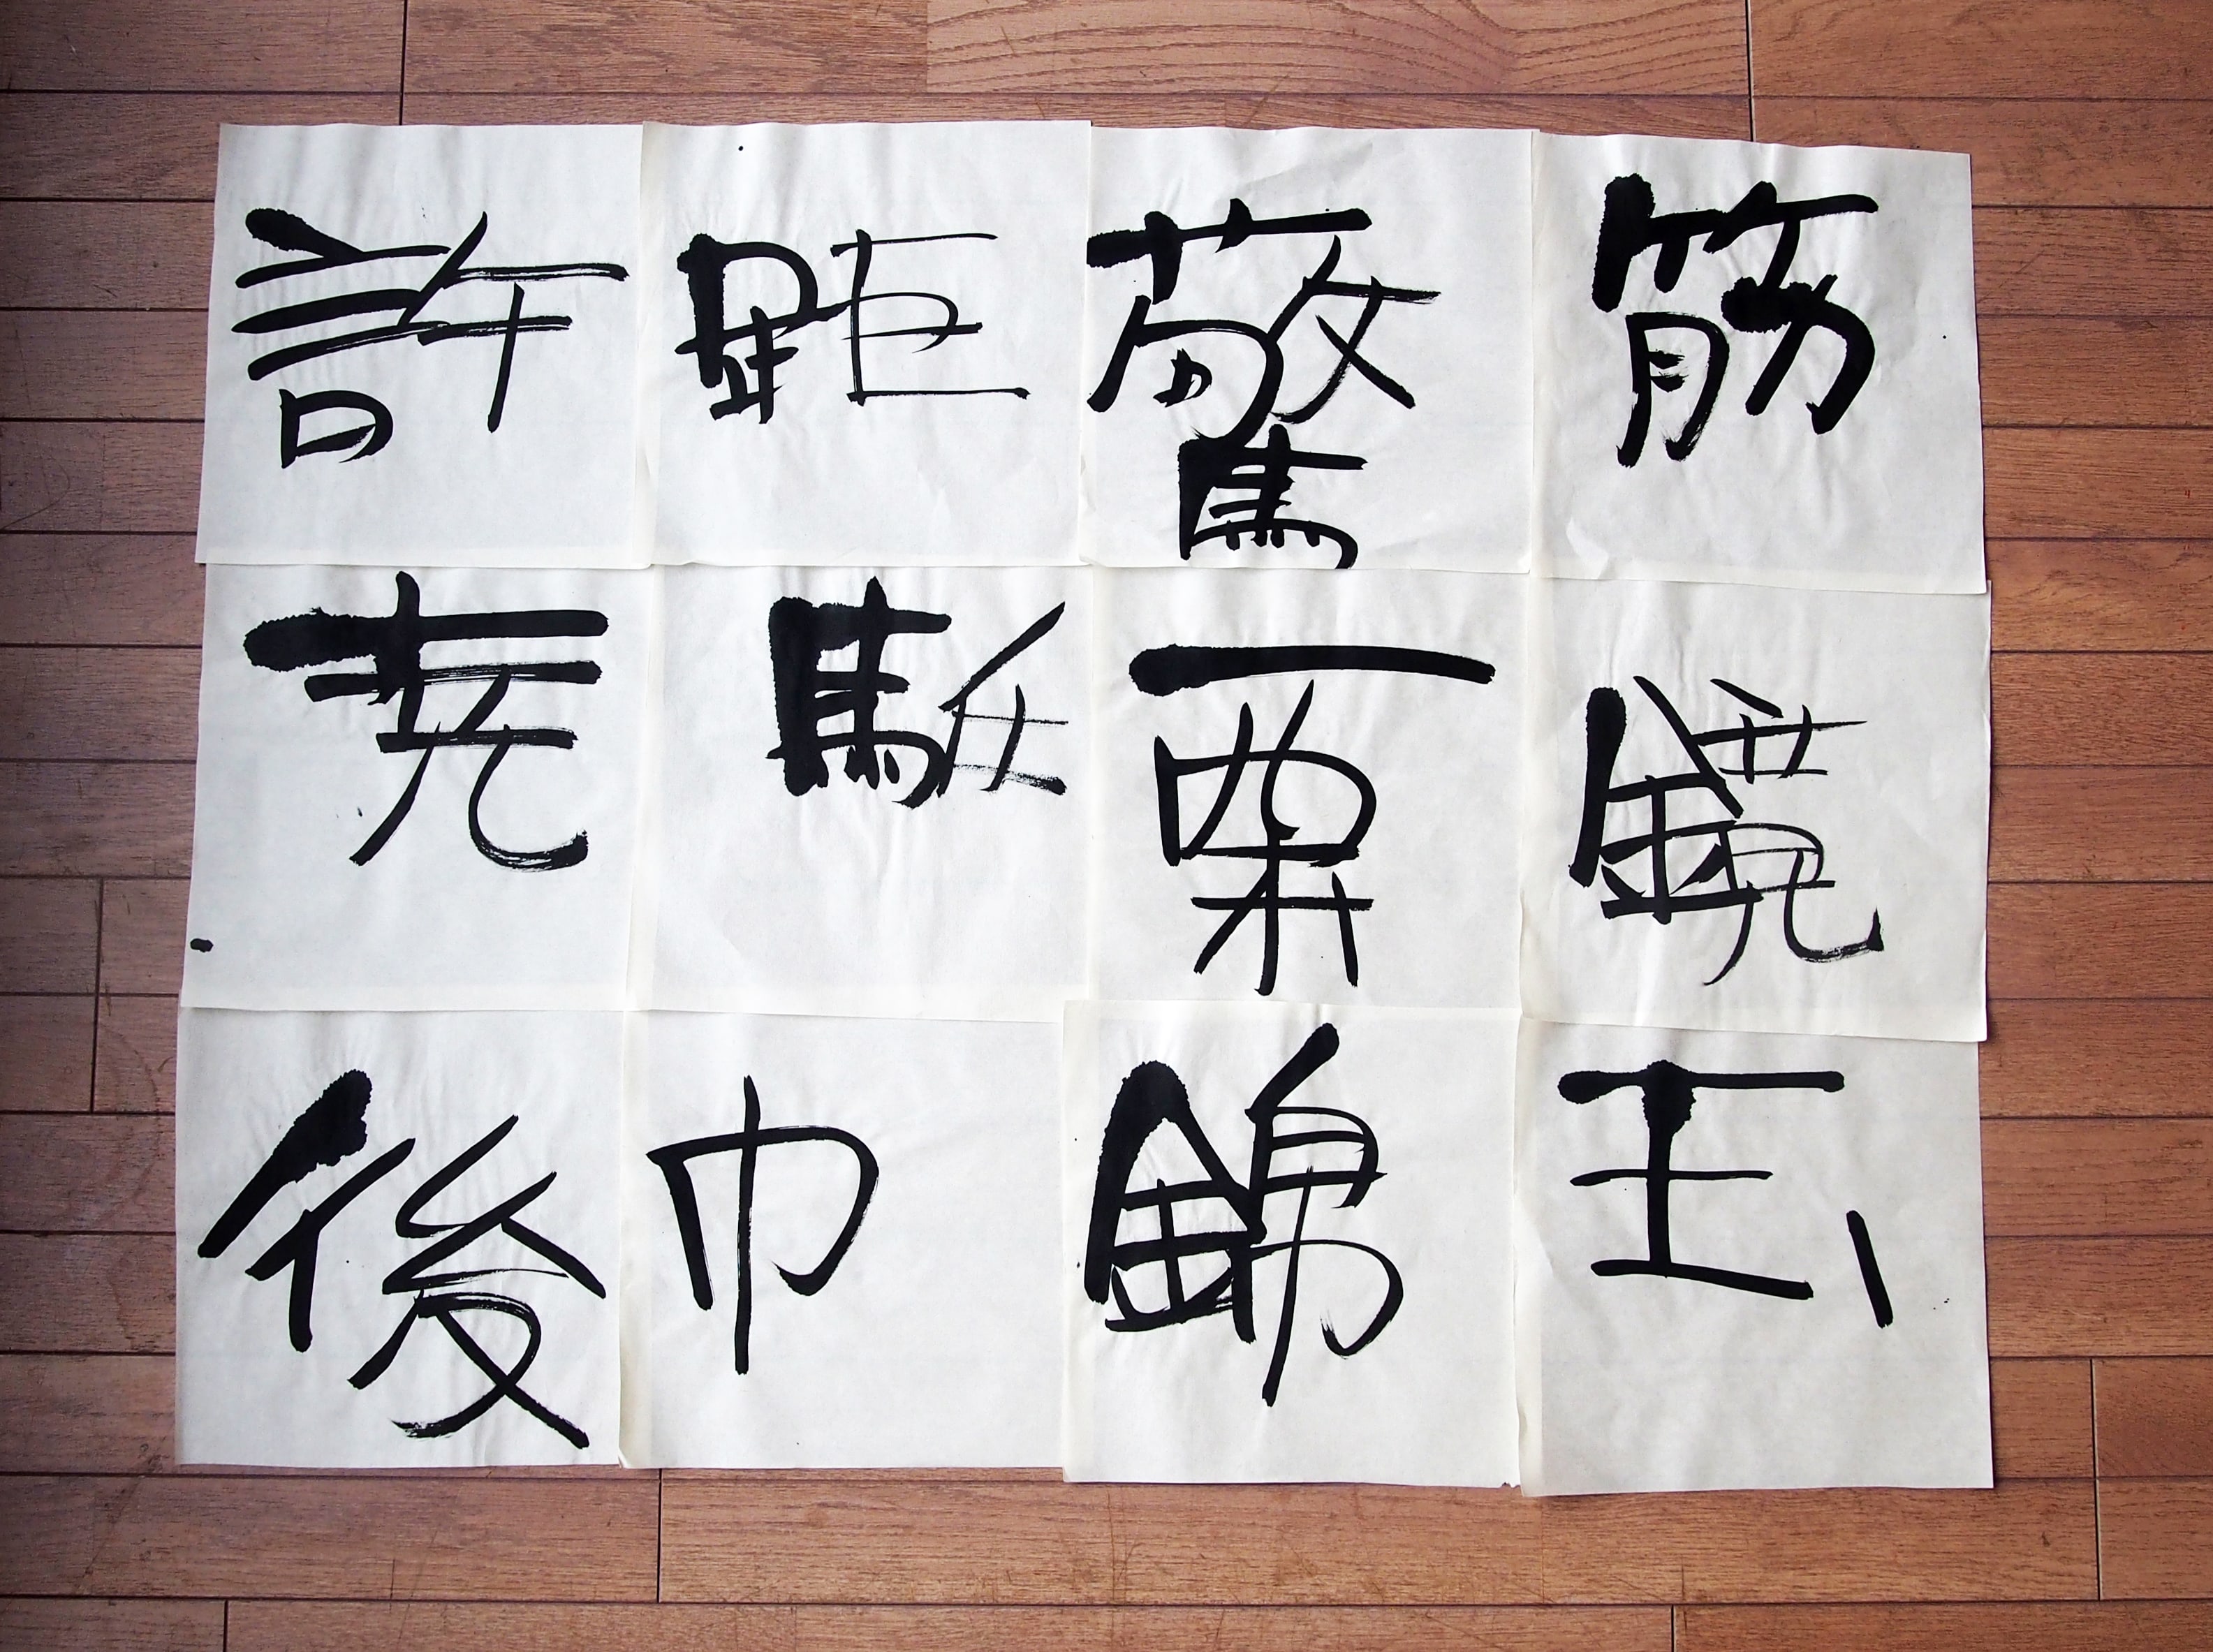 許距驚筋
尭駈栗鏡
後巾錦玉